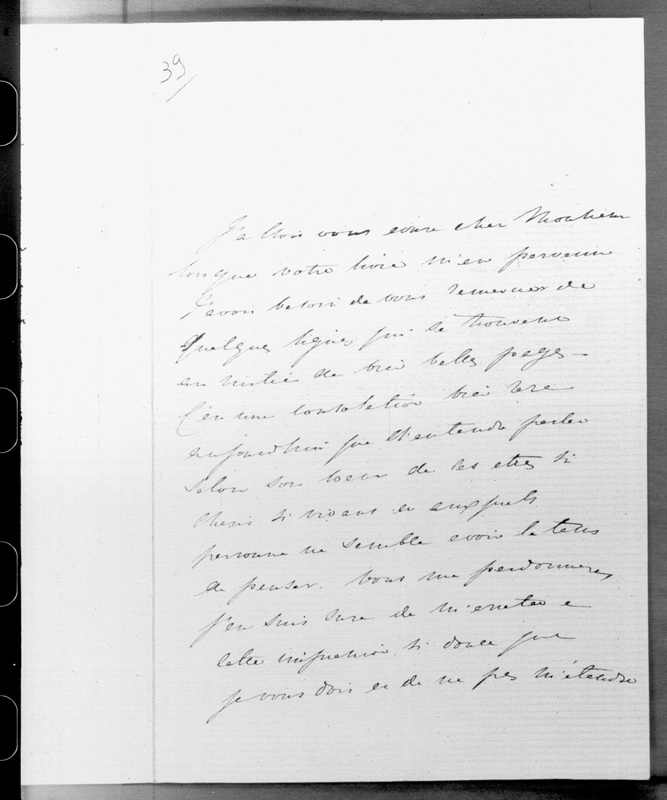 39
J'allois vous ecrire cher Monsieur
lorsque votre livre m'est parvenu
J'avois besoin de vous remercier de
quelques lignes qui se trouvent
au milieu de bien belles pages –
C'est une consolation bien rare
aujourdhui que d'entendre parler
selon son cœur de ces etres si
chers si vivans et auxquels
personne ne semble avoir le tems
de penser. Vous me pardonnerez
j'en suis sure de m'arreter a
cette impression si douce que
je vous dois et de ne pas m'étendre